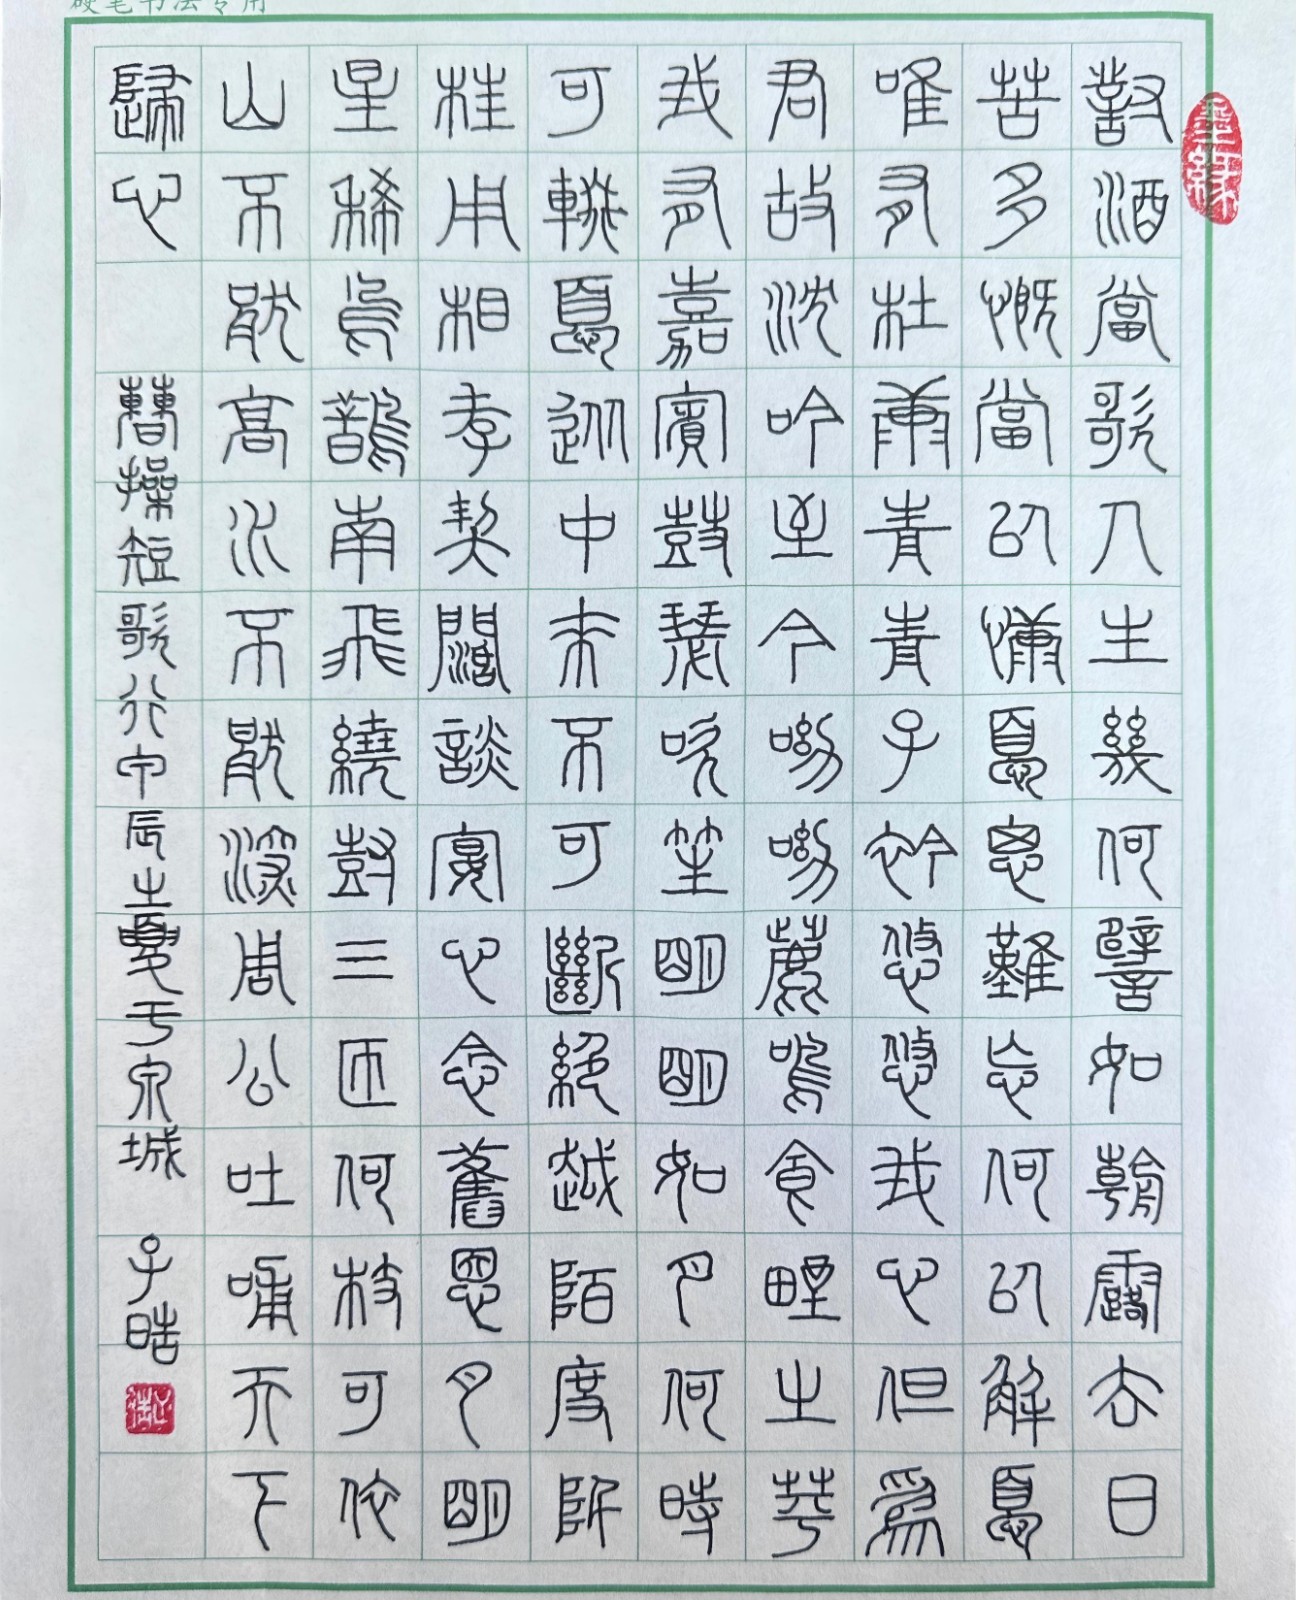 硬笔书法专用
墨緣
對酒當歌人生幾何譬如朝露去日
苦多慨當以慷憂思難忘何以解憂
唯有杜康青青子衿悠悠我心但爲
君故沈吟至今呦呦鹿鳴食野之苹
我有嘉賓鼓瑟吹笙明明如月何時
可輟憂從中來不可斷絕越陌度阡
枉用相存契闊談宴心念舊恩月明
星稀烏鵲南飛繞樹三匝何枝可依
山不厭高水不厭深周公吐哺天下
歸心
曹操短歌行甲辰之夏于泉城 子晧